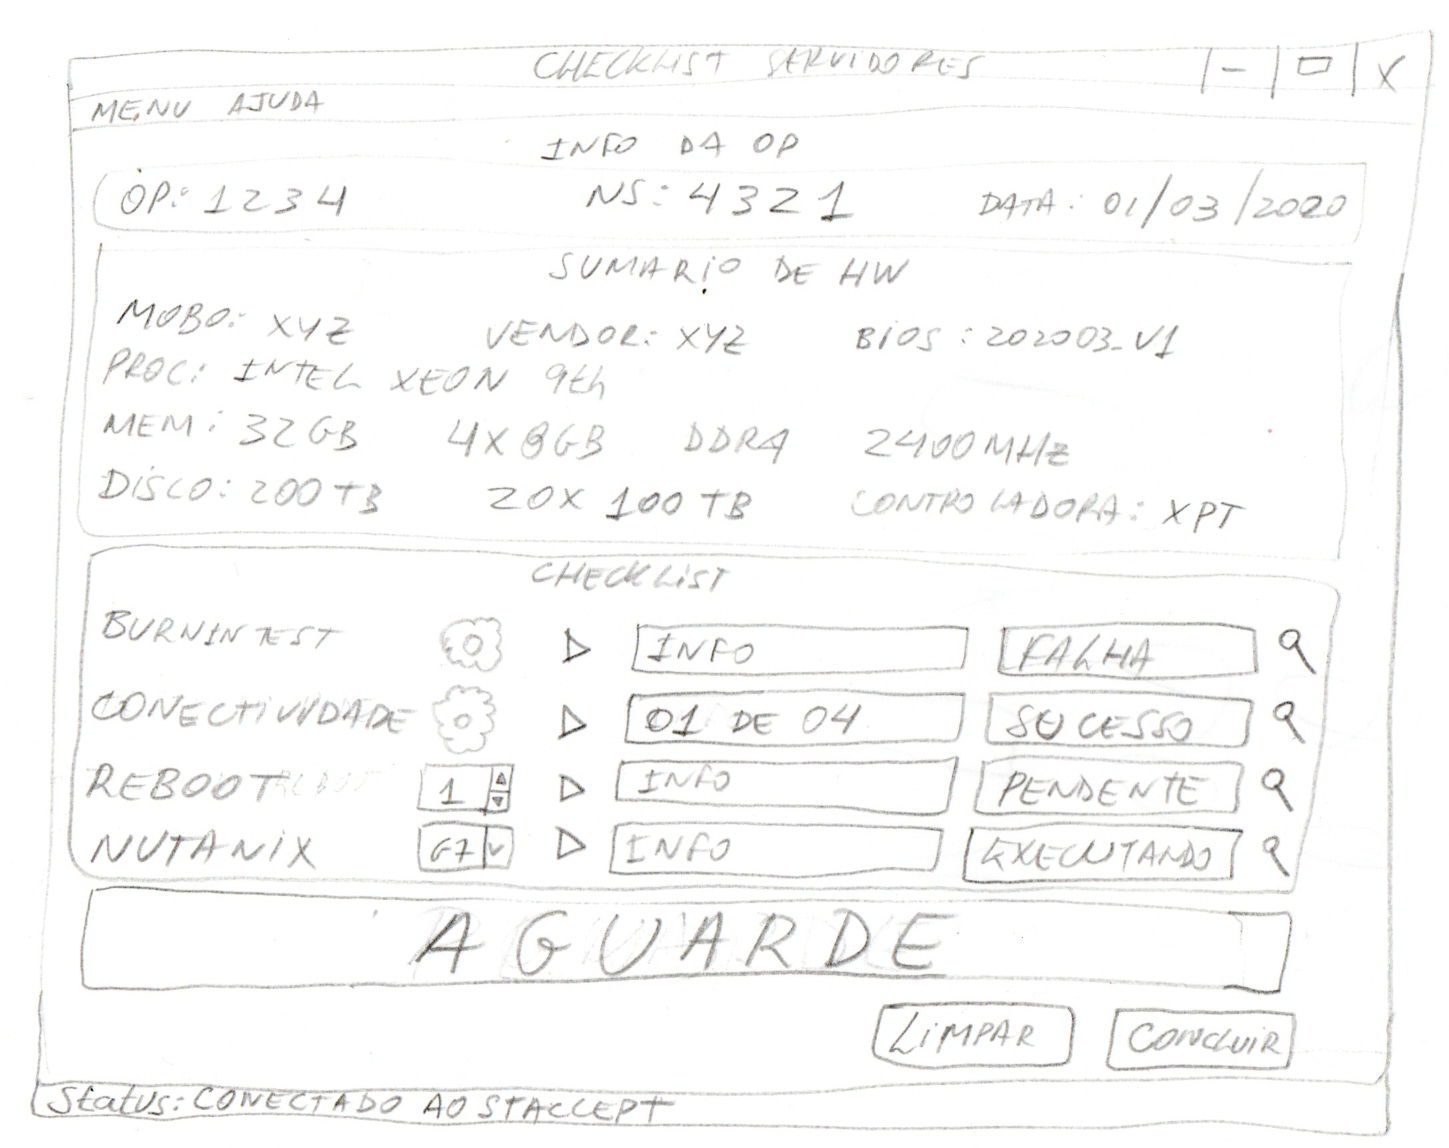 CHECKLIST SERVIDORES - X
MENU AJUDA
INFO DA OP
OP: 1234 NS: 4321 DATA: 01/03/2020
SUMARIO DE HW
MOBO: XYZ VENDOR: XYZ BIOS: 202003_V1
PROC: INTEL XEON 9th
MEM: 32GB 4X8GB DDR4 2400MHz
DISCO: 200TB 20X 100TB CONTROLADORA: XPT
CHECKLIST
BURNINTEST INFO FALHA
CONECTIVIDADE 01 DE 04 SUCESSO
REBOOT 1 INFO PENDENTE
NUTANIX G7 INFO EXECUTANDO
AGUARDE
LIMPAR CONCLUIR
Status: CONECTADO AO STACCEPT